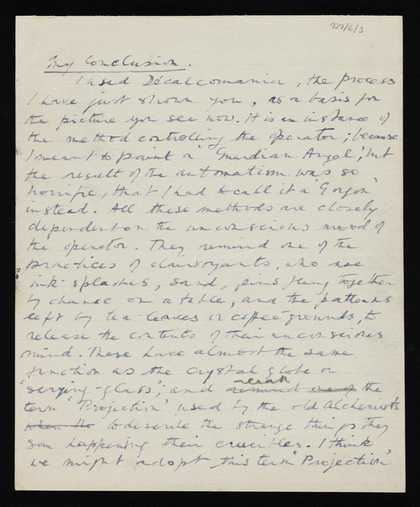 My Conclusion.
I used Décalcomania, the process
I have just shown you, as a basis for
the picture you see now. It is an instance of
the method controlling the operator; because
I meant to paint a "Guardian Angel", but
the result of the automatism was so
horrific, that I had to call it a 'Gorgon'
instead. All these methods are closely
dependent on the unconscious mind of
the operator. They remind one of the
practices of clairvoyants, who use
ink-splashes, sand, pins flung together
by chance on a table, and the patterns
left by tea-leaves or coffee-grounds, to
release the contents of their unconscious
mind. These have almost the same
function as the crystal globe or
'scrying-glass'; and recall the
term 'Projection' used by the old Alchemists
to describe the strange things they
saw happening their crucibles. I think
we might adopt this term "Projection"